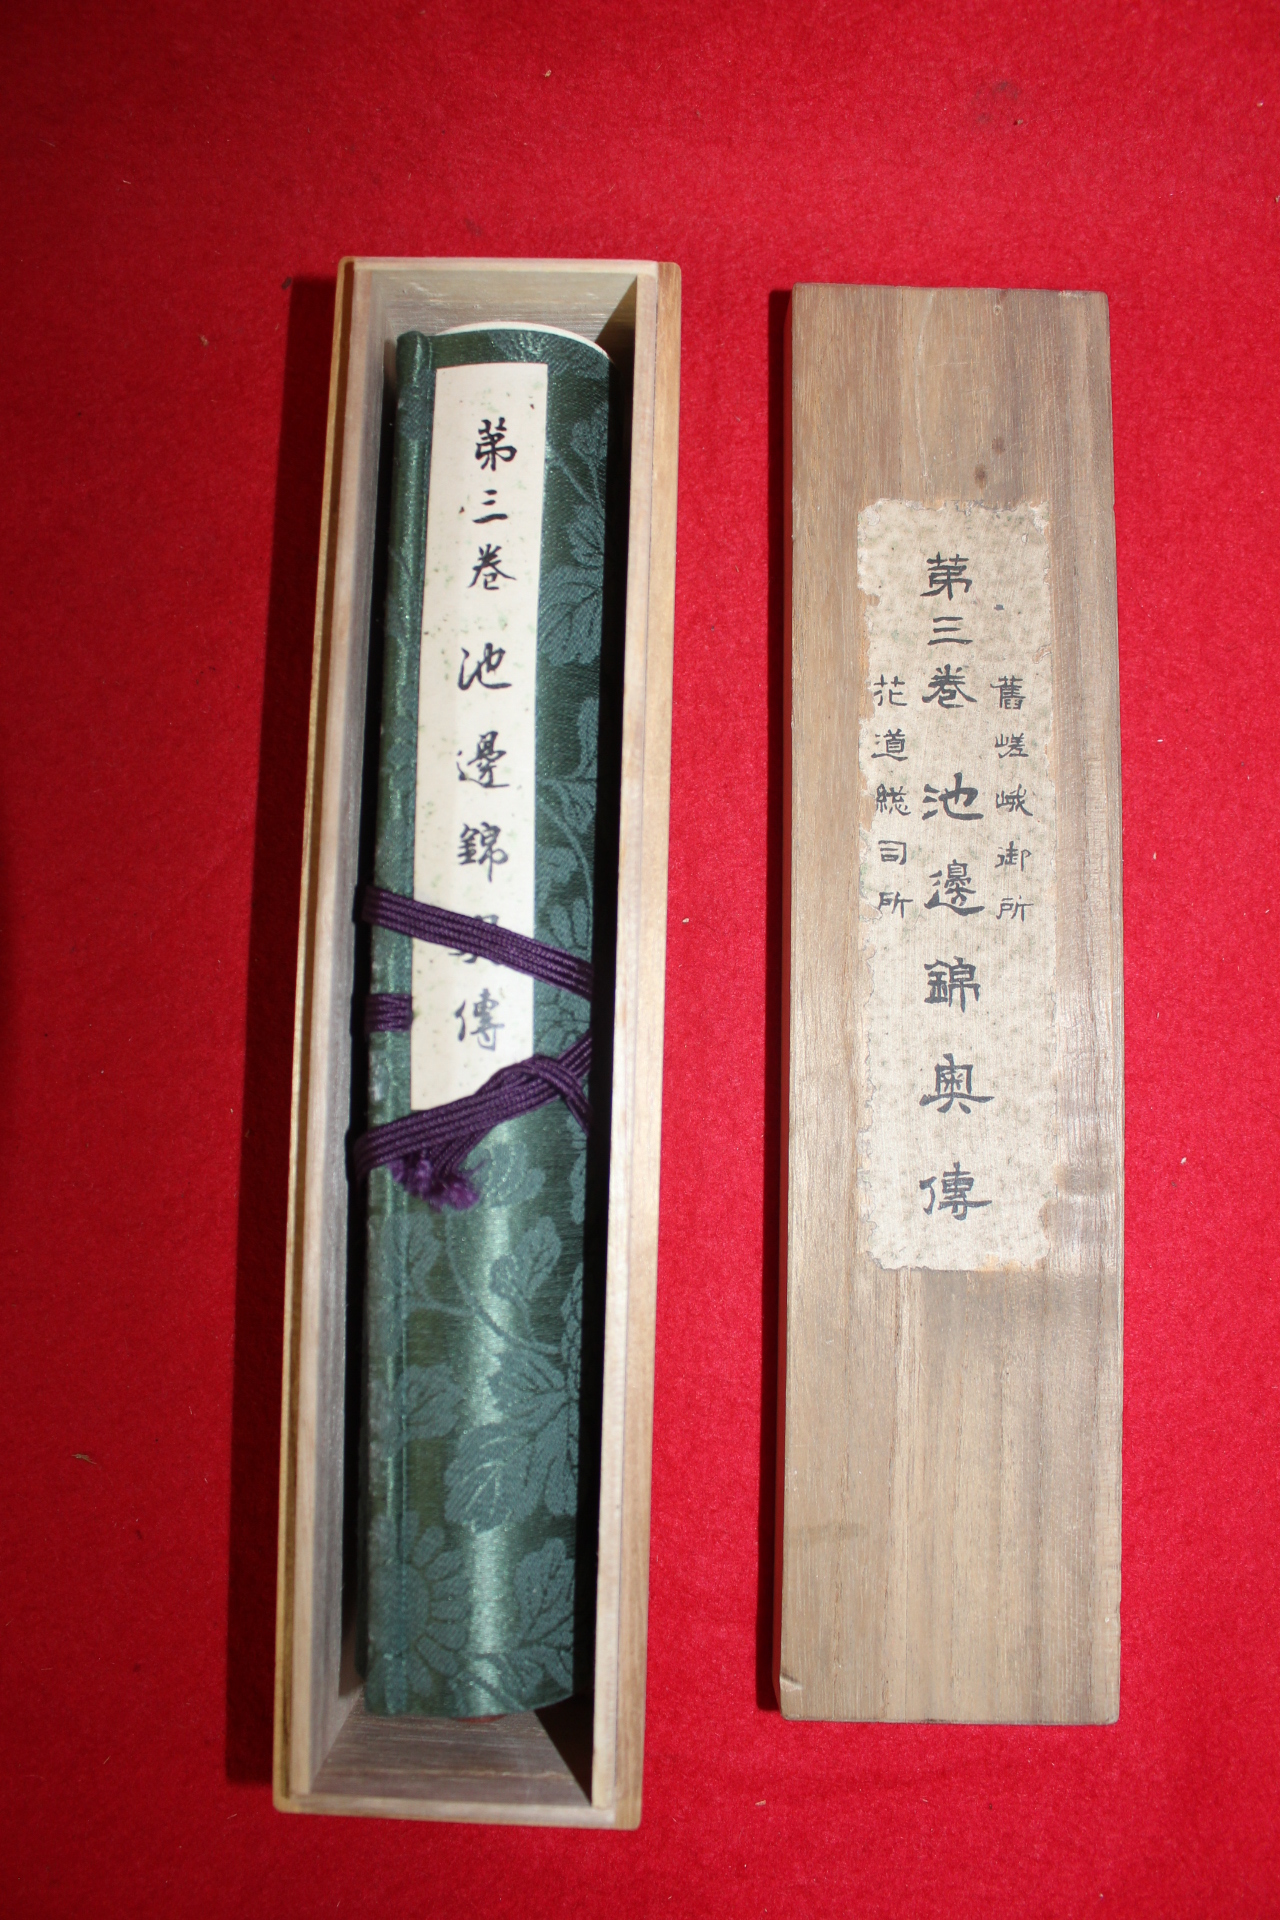 第三巻 池邊錦奥傳
舊嵯峨御所
第三巻 池邊錦奥傳
花道総司所